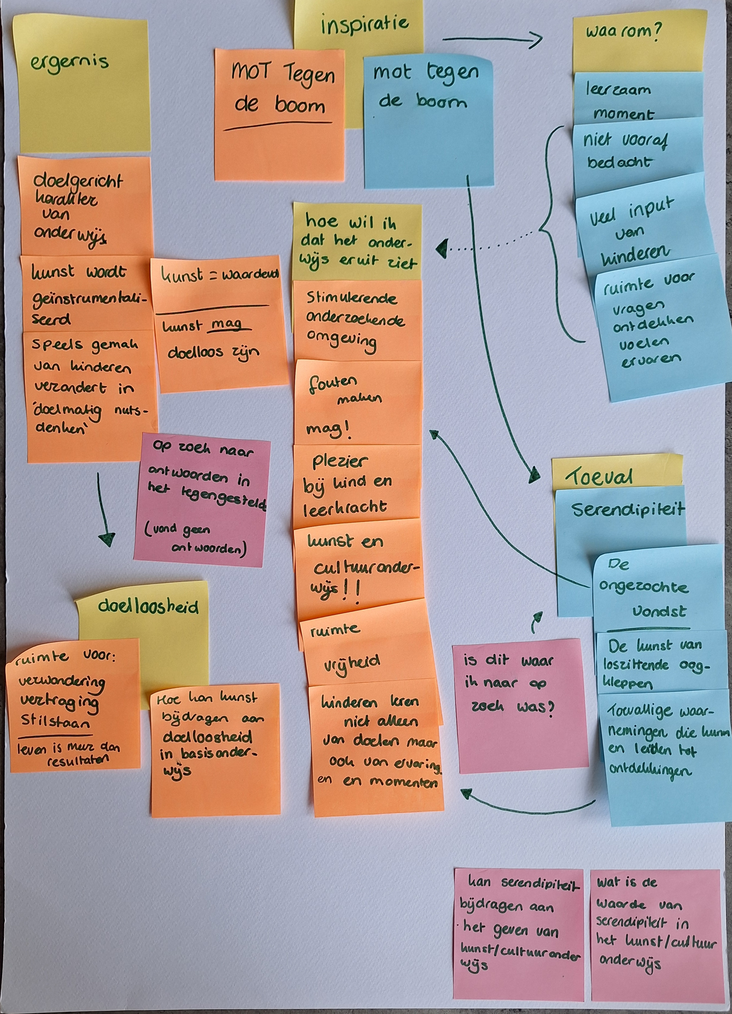 ergernis
doelgericht
karakter
van
onderwijs
kunst wordt
geïnstrumentali-
seerd
Speels gemak
van kinderen
verandert in
'doelmatig nuts-
denken'
kunst = waardevol
kunst mag
doelloos zijn
op zoek naar
antwoorden in
het tegengestelde
(vond geen
antwoorden)
doelloosheid
ruimte voor:
verwondering
vertraging
Stilstaan
leven is meer dan
resultaten
Hoe kan kunst
bijdragen aan
doelloosheid
in basisonder-
wijs
inspiratie
MOT Tegen
de boom
mot tegen
de boom
hoe wil ik
dat het onder-
wijs eruit ziet
Stimulerende
onderzoekende
omgeving
fouten
maken
mag!
plezier
bij kind en
leerkracht
kunst en
cultuuronder-
wijs!!
ruimte
vrijheid
kinderen leren
niet alleen
van doelen maar
ook van ervaring
en en momenten
waarom?
leerzaam
moment
niet vooraf
bedacht
veel input
van
kinderen
ruimte voor
vragen
ontdekken
voelen
ervaren
Toeval
Serendipiteit
De
ongezochte
vondst
De kunst van
loszittende oog-
kleppen
Toevallige waar-
nemingen die kunn
en leiden tot
ontdekkingen
is dit waar
ik naar op
zoek was?
kan serendipiteit
bijdragen aan
het geven van
kunst/cultuuronder
wijs
wat is de
waarde van
serendipiteit in
het kunst/cultuur
onderwijs